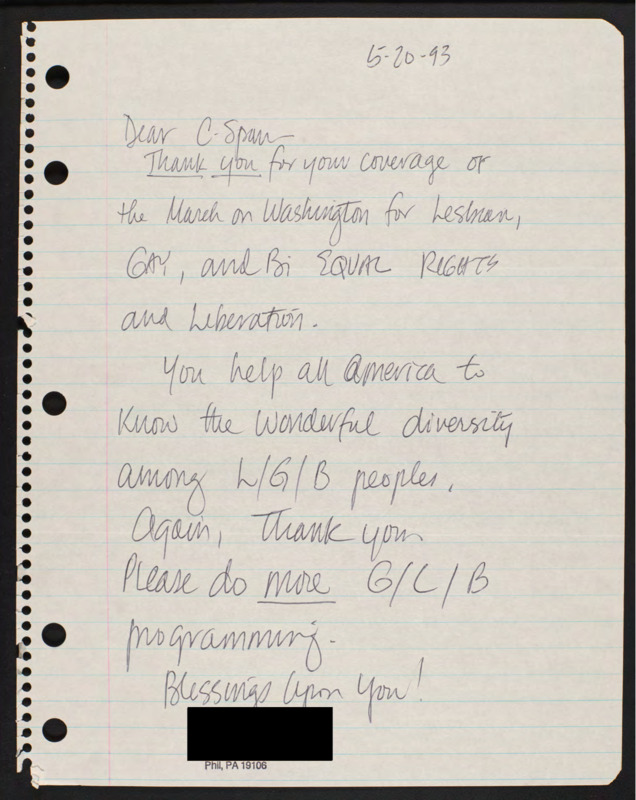 5-20-93
Dear C-Span
Thank you for your coverage of
the March on Washington for Lesbian,
GAY, and Bi EQUAL RIGHTS
and Liberation.
You help all America to
Know the wonderful diversity
among L/G/B peoples.
Again, Thank you
Please do more G/L/B
programming.
Blessings Upon You!
Phil, PA 19106